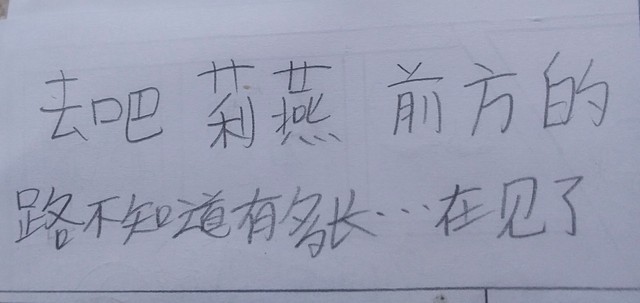 去吧 莉燕 前方的
路不知道有多长…在见了